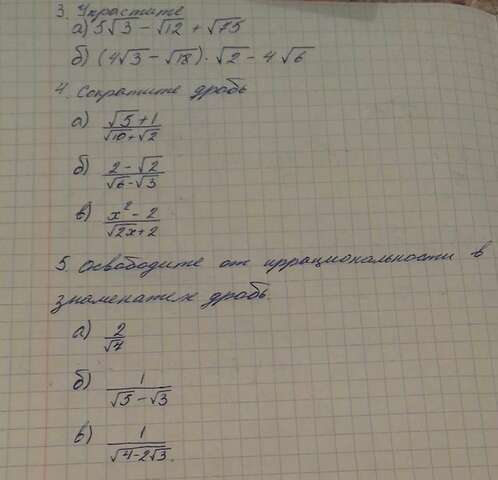 3. Упростите
а) 5√3 − √12 + √75
б) (4√3 − √18) · √2 − 4√6
4. Сократите дробь
а) (√5 + 1)/(√10 + √2)
б) (2 − √2)/(√6 − √3)
в) (x² − 2)/(√2x + 2)
5. Освободите от иррациональности в
знаменателе дробь.
а) 2/√7
б) 1/(√5 − √3)
в) 1/√(4 − 2√3).